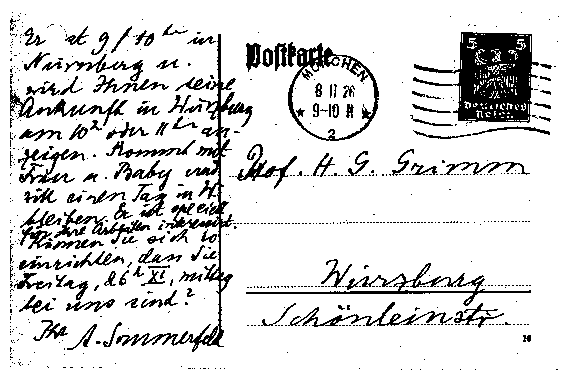 Er ist 9/10 in
Nürnberg u.
wird Ihnen seine
Ankunft in Würzburg
am 10 oder 11 an-
zeigen. Kommt mit
Frau u. Baby und
will einen Tag in W.
bleiben. Er ist speciell
für Ihre Arbeiten interessiert.
Können Sie sich so
einrichten, dass Sie
Freitag, 26 XI, mittag
bei uns sind?
Ihr A. Sommerfeld
Postkarte
MÜNCHEN
8 11 26
9-10 N
2
5 5
Deutsches
Reich
Prof. H. G. Grimm
Würzburg
Schönleinstr.